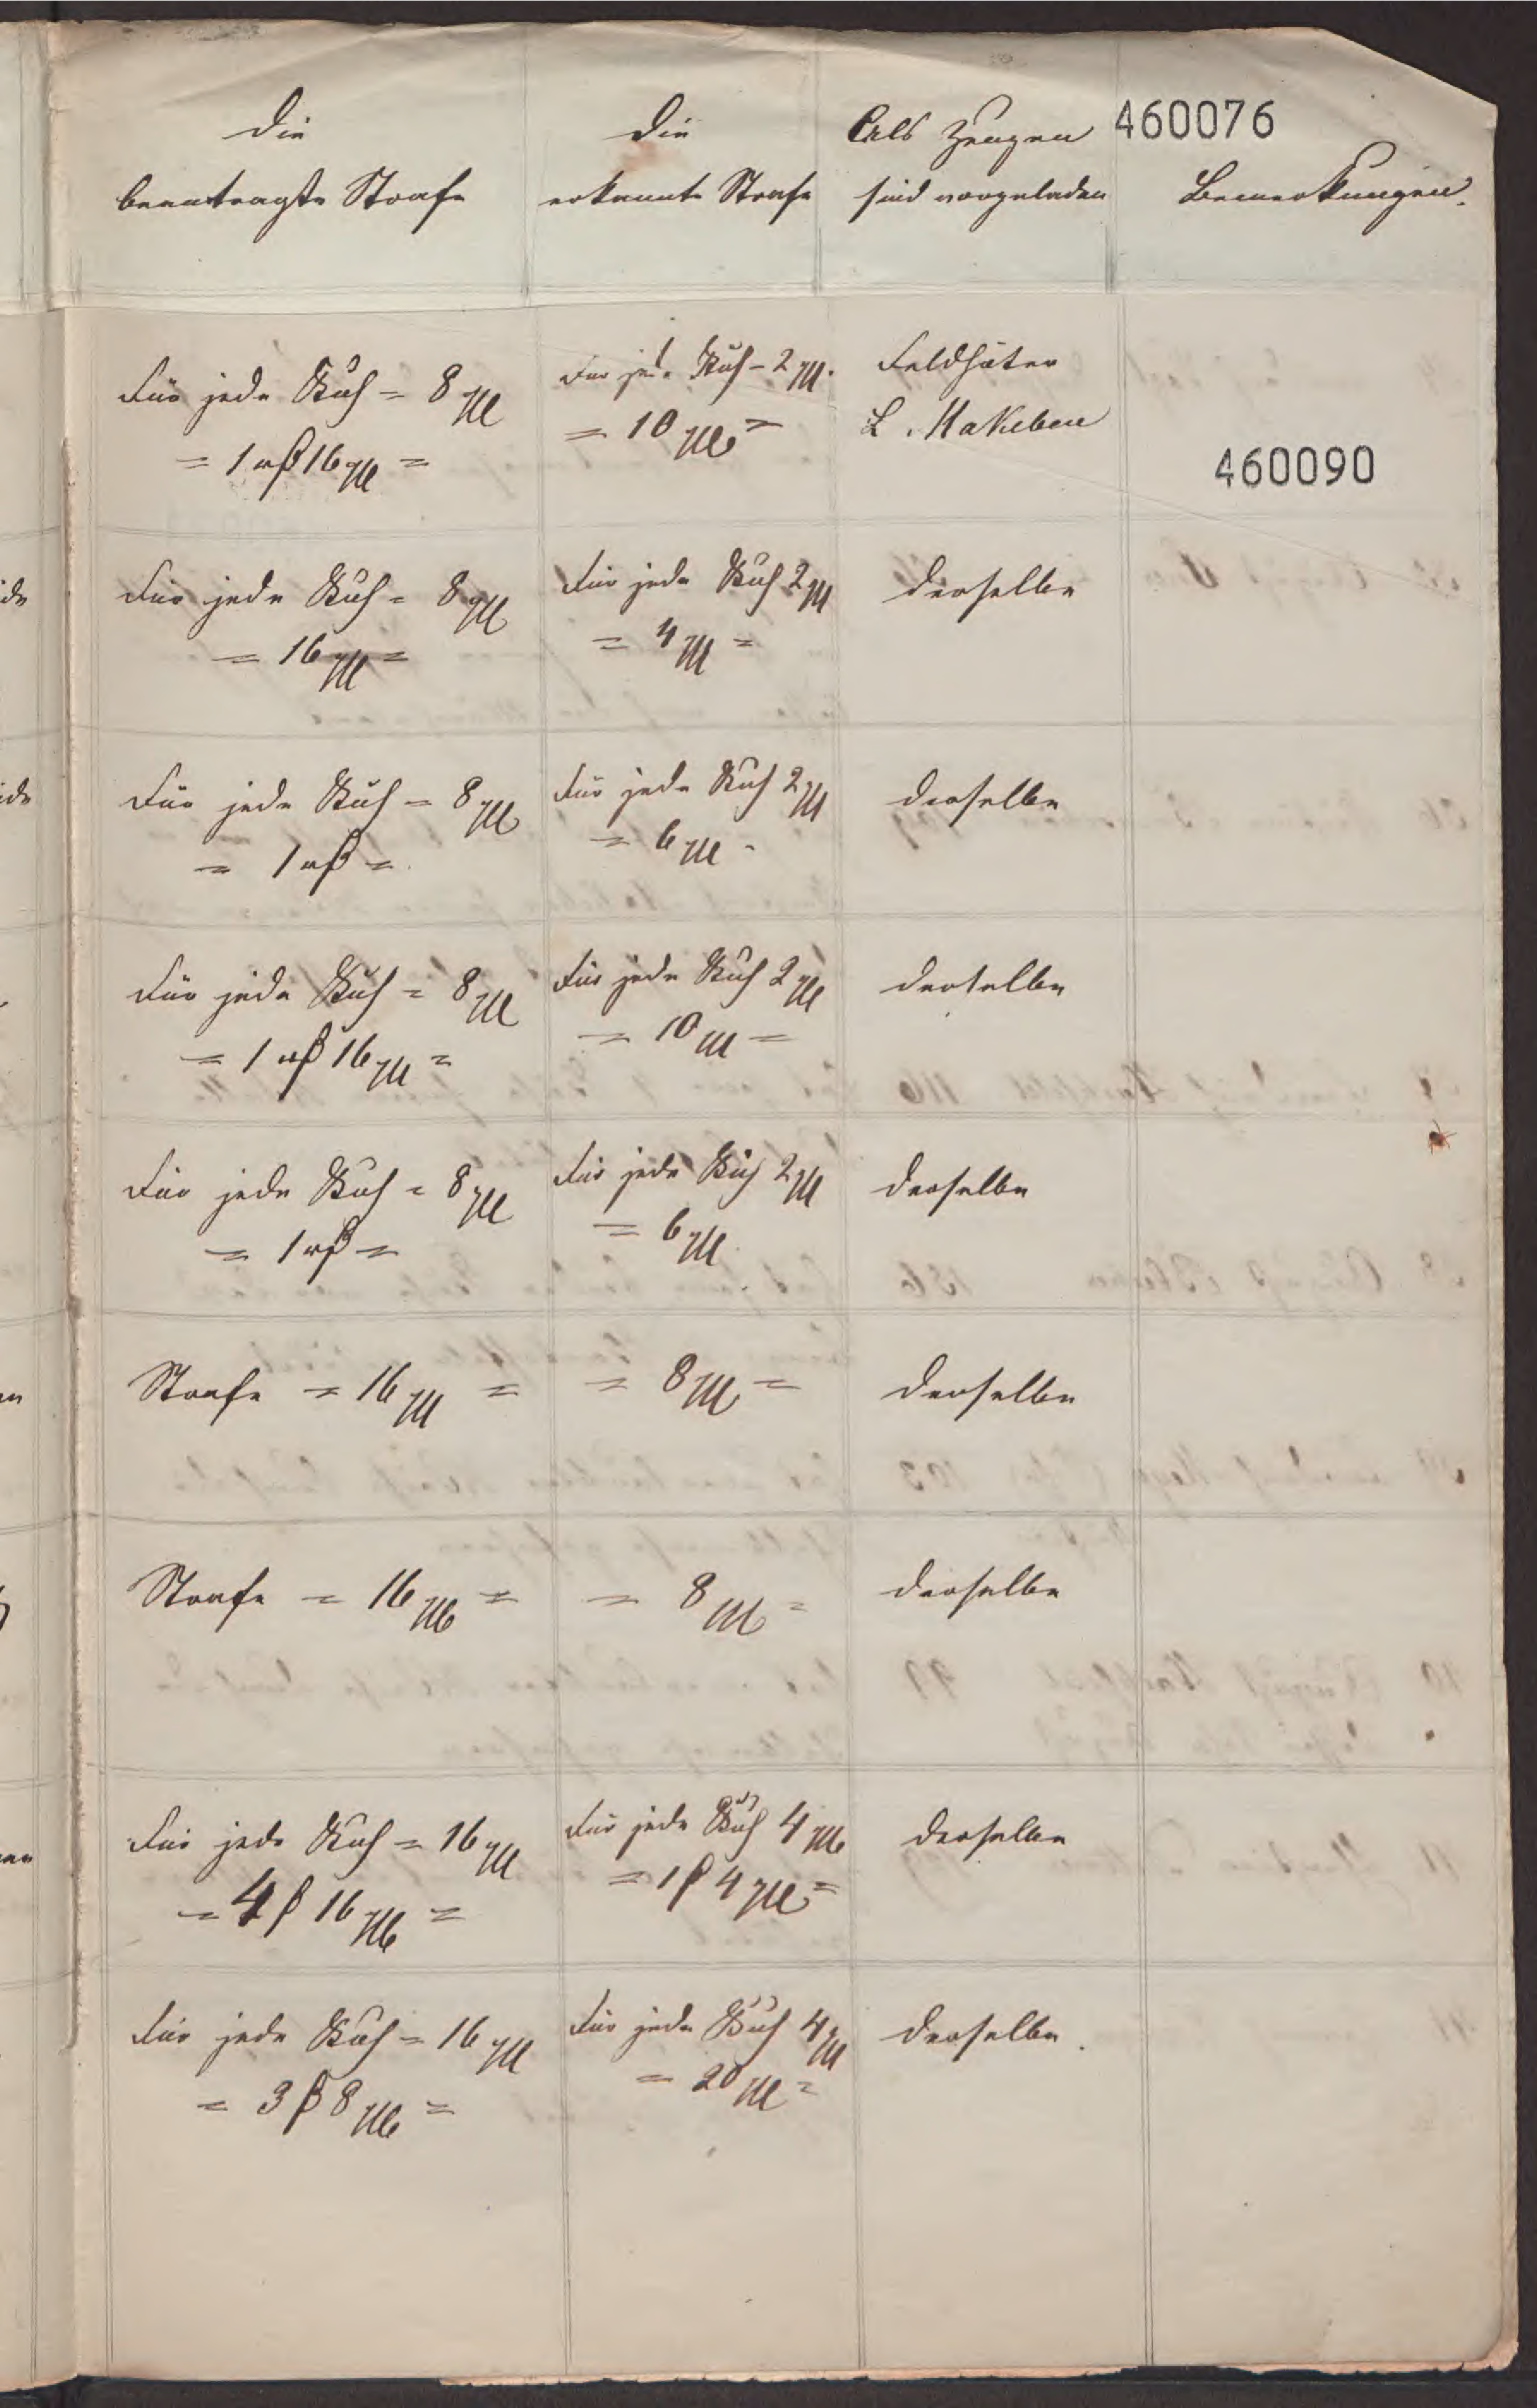 Die
beantragte Strafe
Die
erkannte Strafe
Als Zeugen
sind vorgeladen
460076
Bemerkungen.
Für jede Kuh = 8 M
= 1 rß 16 M =
Für jede Kuh - 2 M.
= 10 M =
Feldhüter
L. Makeben
460090
Für jede Kuh = 8 M
= 16 M =
Für jede Kuh 2 M
= 4 M =
derselbe
Für jede Kuh = 8 M
= 1 rß =
Für jede Kuh 2 M
= 6 M -
derselbe
Für jede Kuh = 8 M
= 1 rß 16 M =
Für jede Kuh 2 M
= 10 M =
derselbe
Für jede Kuh = 8 M
= 1 rß =
Für jede Kuh 2 M
= 6 M
derselbe
Strafe = 16 M =
= 8 M =
derselbe
Strafe = 16 M =
= 8 M =
derselbe
Für jede Kuh = 16 M
= 4 ß 16 M =
Für jede Kuh 4 M
= 1 ß 4 M =
derselbe
Für jede Kuh = 16 M
= 3 ß 8 M =
Für jede Kuh 4 M
= 20 M =
derselbe.